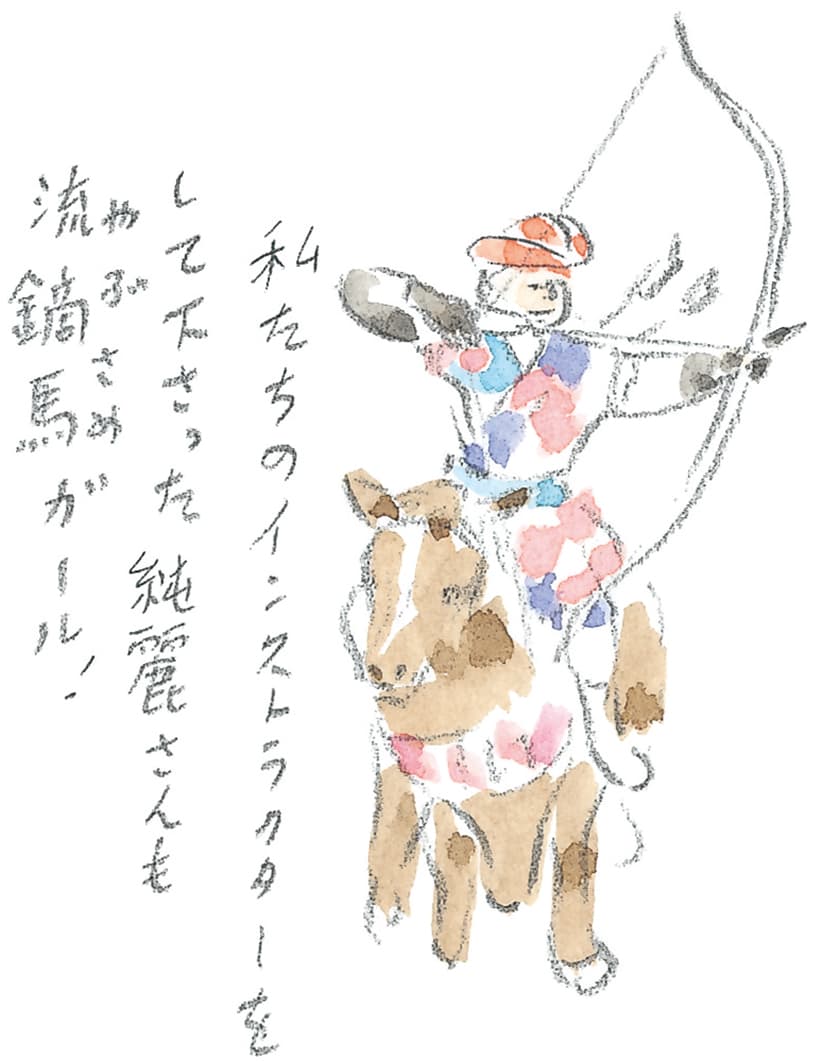 私たちのインストラクターを
して下さった純麗さんも
流鏑馬ガール!
やぶさめ